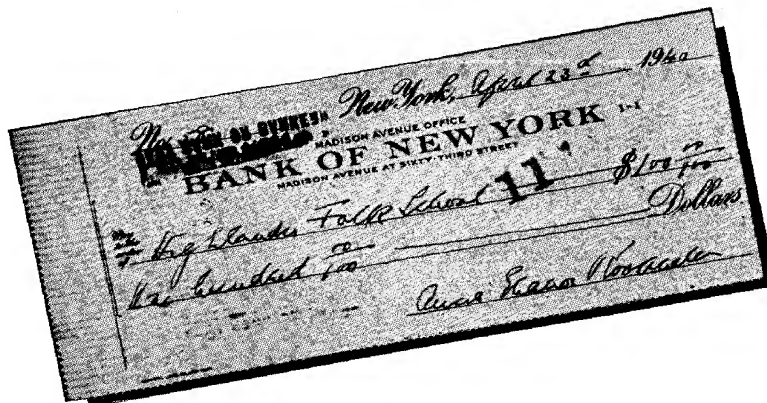 No.
New York, April 23rd 1940
MADISON AVENUE OFFICE
BANK OF NEW YORK 1-1
MADISON AVENUE AT SIXTY-THIRD STREET
11
Highlander Folk School $100 00/100
One hundred 00/100 Dollars
Anna Eleanor Roosevelt